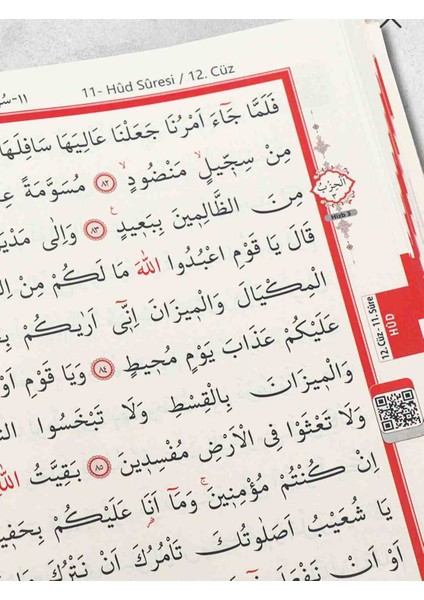 11- Hûd Sûresi / 12. Cüz
فَلَمَّا جَٓاءَ اَمْرُنَا جَعَلْنَا عَالِيَهَا سَافِلَهَا
مِنْ سِجّ۪يلٍ مَنْضُودٍ ﴿٨٢﴾ مُسَوَّمَةً
مِنَ الظَّالِم۪ينَ بِبَع۪يدٍ ﴿٨٣﴾ وَاِلٰى مَدْيَنَ
قَالَ يَا قَوْمِ اعْبُدُوا اللّٰهَ مَا لَكُمْ مِنْ
الْمِكْيَالَ وَالْم۪يزَانَ اِنّ۪ٓي اَرٰيكُمْ
عَلَيْكُمْ عَذَابَ يَوْمٍ مُح۪يطٍ ﴿٨٤﴾ وَيَا قَوْمِ
وَالْم۪يزَانَ بِالْقِسْطِ وَلَا تَبْخَسُوا
وَلَا تَعْثَوْا فِي الْاَرْضِ مُفْسِد۪ينَ ﴿٨٥﴾ بَقِيَّتُ اللّٰهِ
اِنْ كُنْتُمْ مُؤْمِن۪ينَ وَمَٓا اَنَا عَلَيْكُمْ
يَا شُعَيْبُ اَصَلٰوتُكَ تَأْمُرُكَ اَنْ نَتْرُكَ
اَوْ اَنْ نَفْعَلَ
الحزب
Hizb 3
12. Cüz - 11. Sûre
HÛD